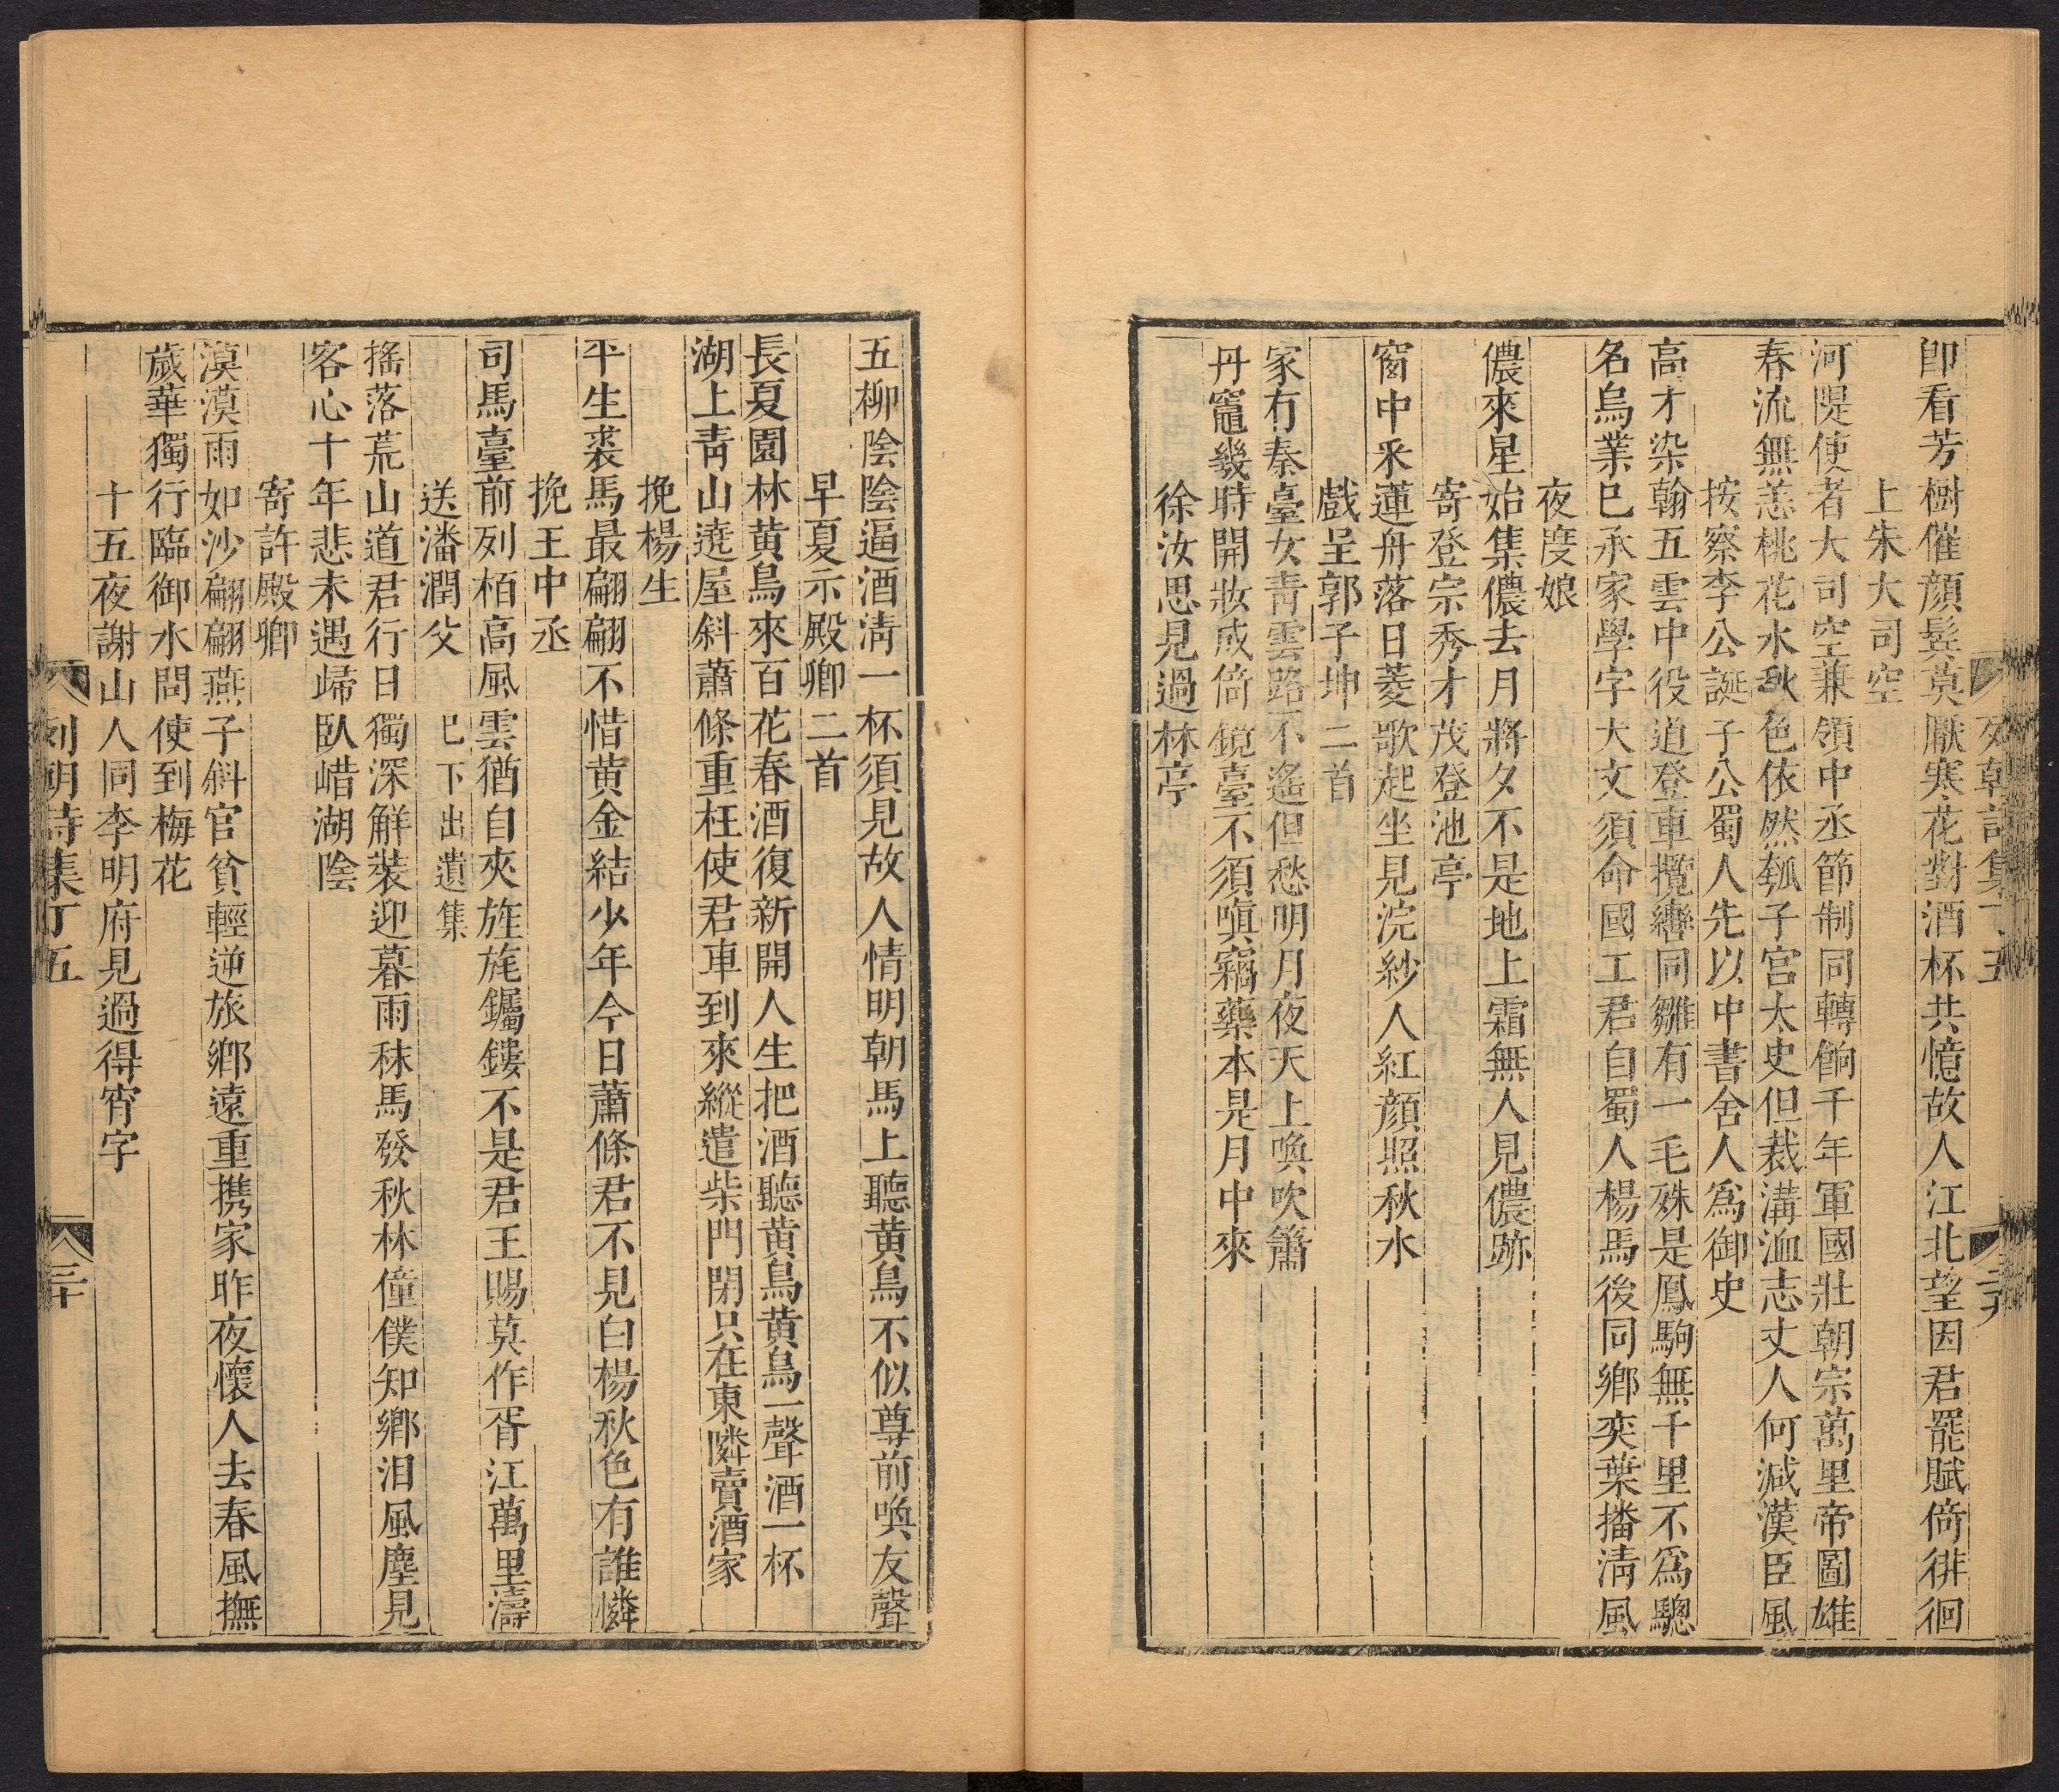 即看芳樹催顏鬂莫厭寒花對酒杯共憶故人江北望因君罷賦倚徘徊
上朱大司空
河隄使者大司空兼領中丞節制同轉餉千年軍國壯朝宗萬里帝圖雄
春流無恙桃花水秋色依然瓠子宮太史但裁溝洫志丈人何減漢臣風
按察李公誕子公蜀人先以中書舍人爲御史
高才染翰五雲中役道登車攬轡同雛有一毛殊是鳳駒無千里不爲驄
名烏業已承家學字大文須命國工君自蜀人楊馬後同鄉奕葉播淸風
夜度娘
儂來星始集儂去月將夕不是地上霜無人見儂跡
寄登宗秀才茂登池亭
窗中采蓮舟落日菱歌起坐見浣紗人紅顏照秋水
戲呈郭子坤二首
家有秦臺女靑雲路不遙但愁明月夜天上喚吹簫
丹竈幾時開妝成倚鏡臺不須嗔竊藥本是月中來
徐汝思見過林亭
五柳陰陰逼酒淸一杯須見故人情明朝馬上聽黄鳥不似尊前喚友聲
早夏示殿卿二首
長夏園林黄鳥來百花春酒復新開人生把酒聽黄鳥黄鳥一聲酒一杯
湖上靑山遶屋斜蕭條重枉使君車到來縱遣柴門閉只在東隣賣酒家
挽楊生
平生裘馬最翩翩不惜黄金結少年今日蕭條君不見白楊秋色有誰憐
挽王中丞
司馬臺前列栢高風雲猶自夾旌旄钃鏤不是君王賜莫作胥江萬里濤
送潘潤父 已下出遺集
搖落荒山道君行日獨深解裝迎暮雨秣馬發秋林僮僕知鄉泪風塵見
客心十年悲未遇歸臥䧿湖陰
寄許殿卿
漠漠雨如沙翩翩燕子斜官貧輕逆旅鄉遠重携家昨夜懷人去春風撫
歲華獨行臨御水問使到梅花
十五夜謝山人同李明府見過得宵字
列朝詩集丁五
三十